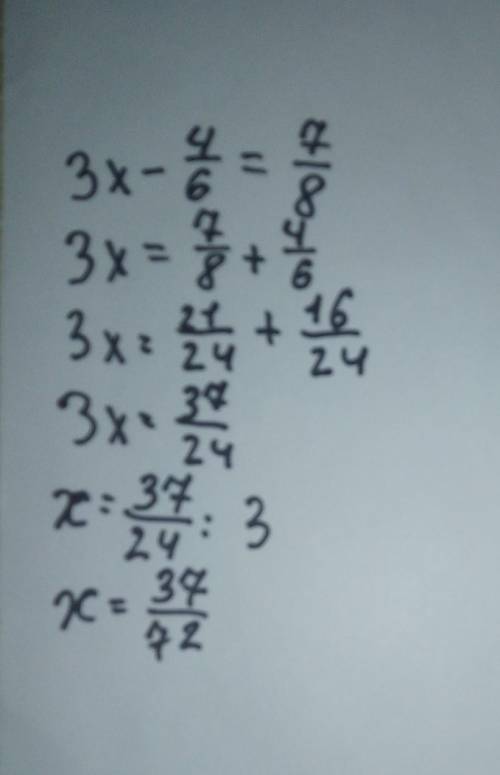 3x - 4/6 = 7/8
3x = 7/8 + 4/6
3x = 21/24 + 16/24
3x = 37/24
x = 37/24 : 3
x = 37/72